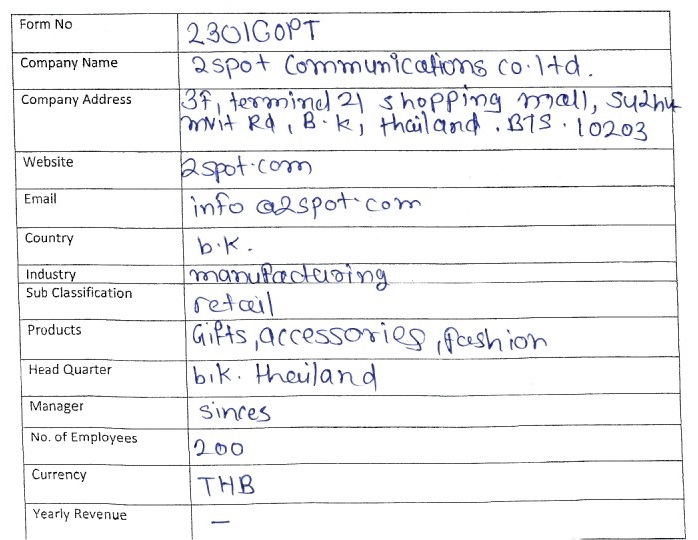 Form No 2301GOPT
Company Name 2spot Communications co.ltd.
Company Address 3f, terminel 21 shopping mall, Su2hu
mvit Rd, B.k, thailand. BTS. 10203
Website 2spot.com
Email info@2spot.com
Country b.k.
Industry manufacturing
Sub Classification retail
Products Gifts, accessories, fashion
Head Quarter b.k. thailand
Manager sinces
No. of Employees 200
Currency THB
Yearly Revenue –